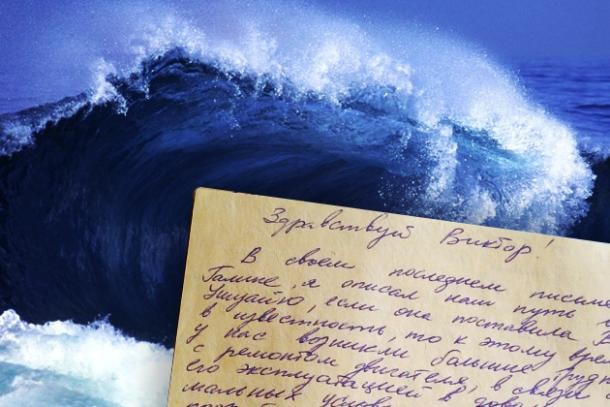 Здравствуй Виктор!
В своём последнем письме
Галине, я описал наш путь
Ушуайю, если она поставила
в известность, то к этому време
у нас возникли большие трудн
с ремонтом двигателя, в связи с
его эксплуатацией в
мальных услов